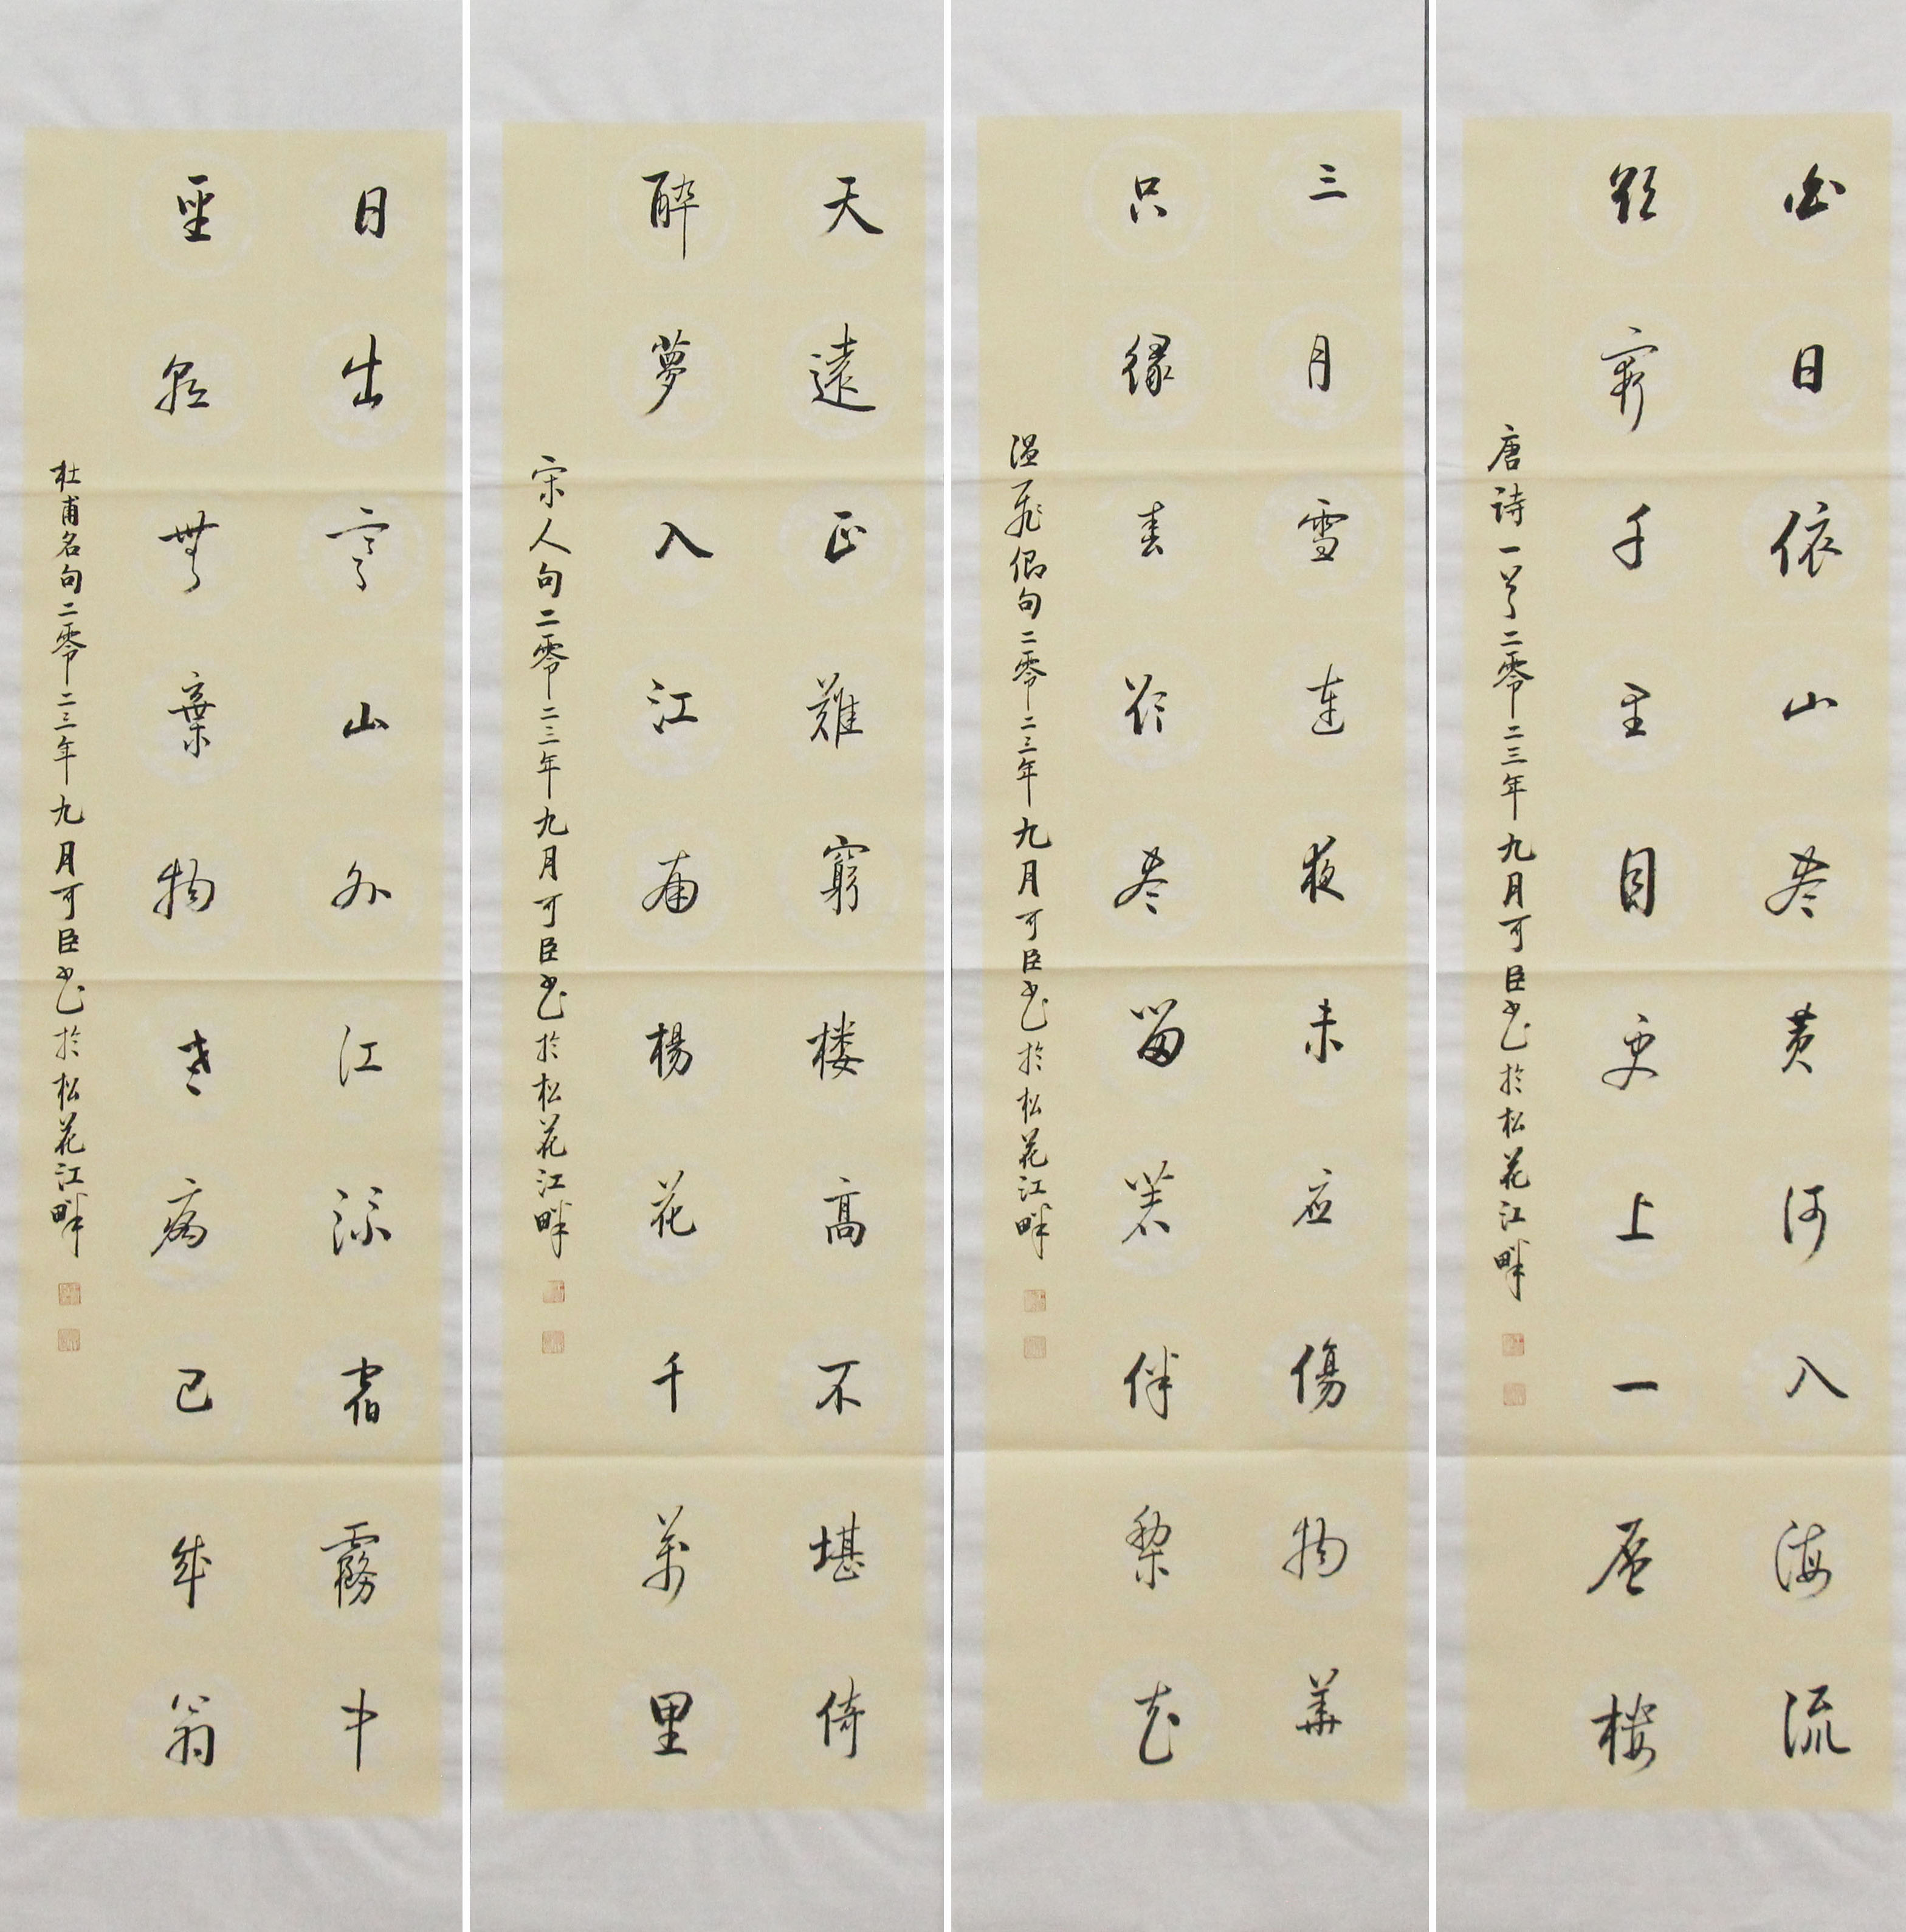 白日依山尽黄河入海流
欲窮千里目更上一层楼
唐诗一首二零二三年九月可臣书於松花江畔
三月雪连夜未应傷物華
只缘春欲尽留著伴梨花
温飛卿句二零二三年九月可臣书於松花江畔
天遠正難窮楼高不堪倚
醉夢入江南楊花千萬里
宋人句二零二三年九月可臣书於松花江畔
日出寒山外江流宿霧中
聖朝無棄物老病已成翁
杜甫名句二零二三年九月可臣书於松花江畔